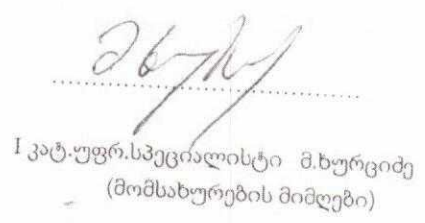 I კატ.უფრ.სპეციალისტი მ.ხურციძე
(მომსახურების მიმღები)